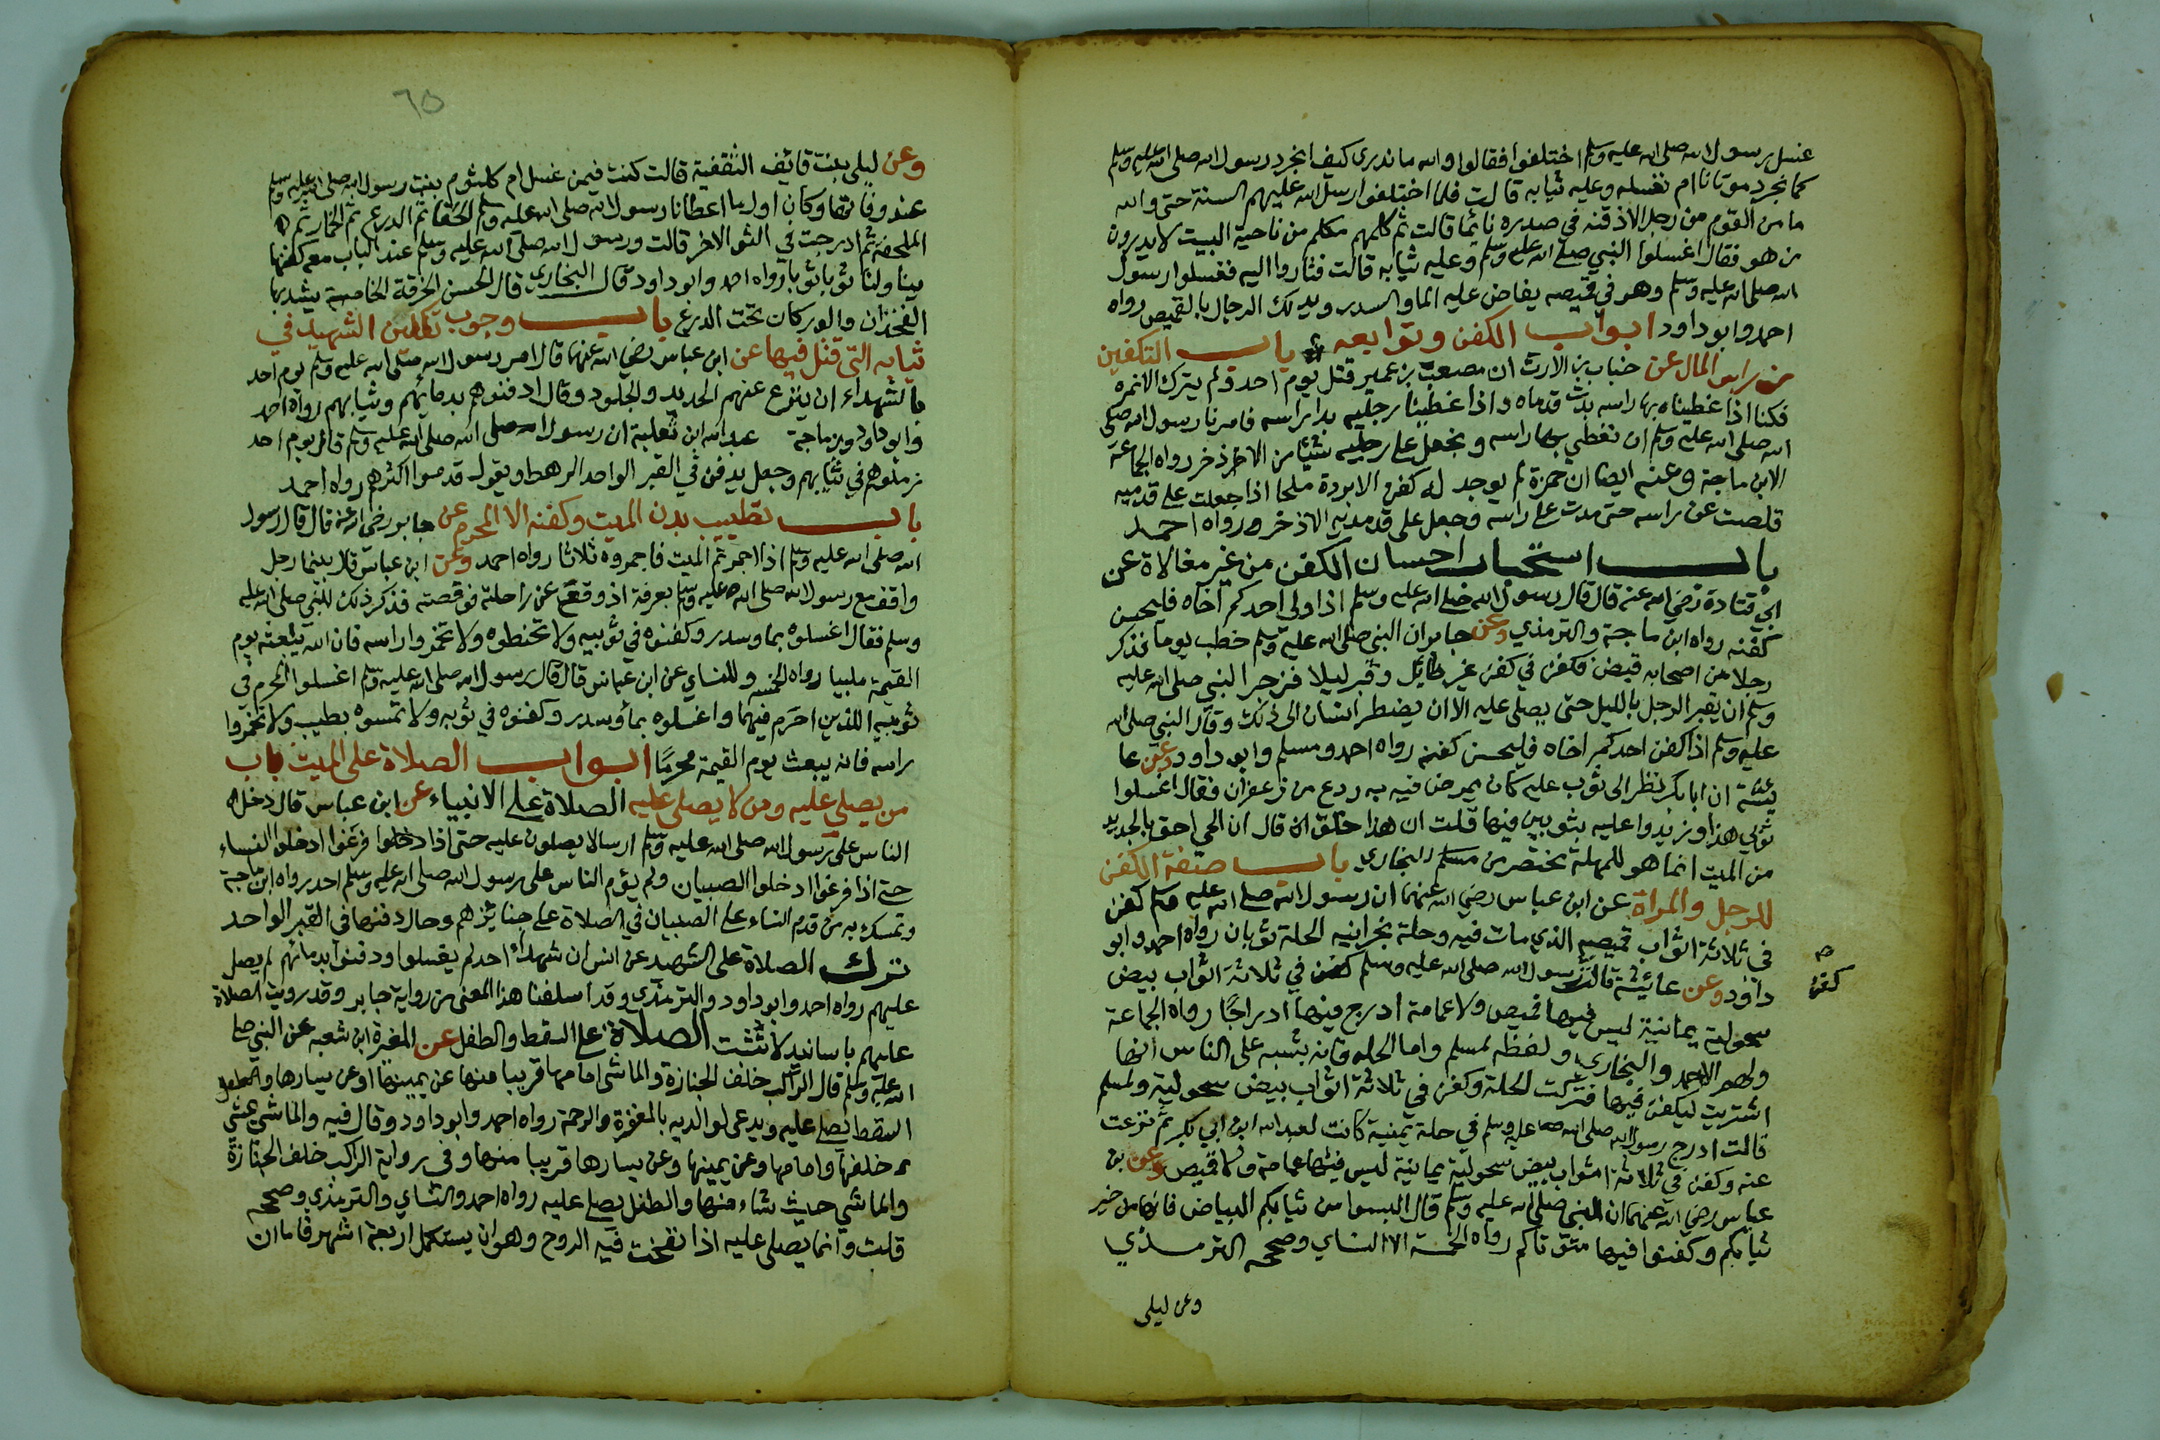 غسل رسول الله صلى الله عليه وسلم اختلفوا فقالوا والله ما ندرى كيف انجرد رسول الله صلى الله عليه وسلم
كما نجرد موتانا ام نغسله وعليه ثيابه قالت فلما اختلفوا ارسل الله عليهم السنة حتى والله
ما من القوم من رجل الا ذقنه في صدره نائما قالت ثم كلمهم مكلم من ناحية البيت لا يدرون
من هو فقال اغسلوا النبي صلى الله عليه وسلم وعليه ثيابه قالت فثاروا اليه فغسلوا رسول
الله صلى الله عليه وسلم وهو في قميصه يفاض عليه الما والسدر ويدلك الرجال بالقميص رواه
احمد وابو داود ابواب الكفن وتوابعه باب التكفين
من راس المال عن خباب بن الارت ان مصعب بن عمير قتل يوم احد ولم يترك الا نمرة
فكنا اذا غطينا بها راسه بدت قدماه واذا غطينا رجليه بدا راسه فامرنا رسول الله صلى
الله صلى الله عليه وسلم ان نغطي بها راسه ونجعل على رجليه شيئا من الاذخر رواه الجماعة
الا ابن ماجة وعنه ايضا ان حمزة لم يوجد له كفن الا بردة ملحا اذا جعلت على قدميه
قلصت عن راسه حتى مدت على راسه وجعل على قدميه الاذخر ورواه احمد
باب استحباب احسان الكفن من غير مغالاة عن
ابي قتادة رضي الله عنه قال قال رسول الله صلى الله عليه وسلم اذا ولى احدكم اخاه فليحسن
كفنه رواه ابن ماجة والترمذي وعن جابر ان النبي صلى الله عليه وسلم خطب يوما فذكر
رجلا من اصحابه قبض فكفن في كفن غير طايل وقبر ليلا فزجر النبي صلى الله عليه
وسلم ان يقبر الرجل بالليل حتى يصلى عليه الا ان يضطر انسان الى ذلك وقال النبي صلى الله
عليه وسلم اذا كفن احدكم اخاه فليحسن كفنه رواه احمد ومسلم وابو داود وعن عا
يشة ان ابا بكر نظر الى ثوب عليه كان يمرض فيه به ردع من زعفران فقال اغسلوا
ثوبي هذا وزيدوا عليه ثوبين فيها قلت ان هذا خلق ان قال ان الحي احق بالجديد
من الميت انما هو للمهلة مختصر من مسلم البخاري باب صفة الكفن
للرجل والمراة عن ابن عباس رضي الله عنهما ان رسول الله صلى الله عليه وسلم كفن
في ثلاثة اثواب قميصه الذي مات فيه وحلة نجرانيه الحلة ثوبان رواه احمد وابو
داود وعن عائشة قالت رسول الله صلى الله عليه وسلم كفن في ثلاثة اثواب بيض
صح
كفن
سحولية يمانية ليس فيها قميص ولا عمامة ادرج فيها ادراجا رواه الجماعة
ولهم الا احمد والبخاري ولفظه لمسلم واما الحله فانه يشبه على الناس انها
اشتريت ليكفن فيها فتركت الحلة وكفن في ثلاثة اثواب بيض سحولية ولمسلم
قالت ادرج رسول الله صلى الله عليه وسلم في حلة يمنية كانت لعبد الله ابن ابي بكر ثم نزعت
عنه وكفن في ثلاثة اثواب بيض سحولية يمانية ليس فيها عمامة ولا قميص وعن بن
عباس رضي الله عنهما ان النبي صلى الله عليه وسلم قال البسوا من ثيابكم البياض فانها من خير
ثيابكم وكفنوا فيها موتاكم رواه الخمسة الا النساي وصححه الترمذي
وعن ليلى
٦٥
وعن ليلى بنت قائف الثقفية قالت كنت فيمن غسل ام كلثوم بنت رسول الله صلى الله عليه وسلم
عند وفاتها وكان اول ما اعطانا رسول الله صلى الله عليه وسلم الحقا ثم الدرع ثم الخمار ثم
الملحفة ثم ادرجت في الثوب الاخر قالت ورسول الله صلى الله عليه وسلم عند الباب معه كفنها
يناولنا ثوبا ثوبا رواه احمد وابو داود قال البخاري قال الحسن الخرقة الخامسة يشد بها
الفخذان والوركان تحت الدرع باب وجوب تكفين الشهيد في
ثيابه التي قتل فيها عن ابن عباس رضي الله عنهما قال امر رسول الله صلى الله عليه وسلم يوم احد
بالشهداء ان ينزع عنهم الحديد والجلود وقال ادفنوهم بدمائهم وثيابهم رواه احمد
وابو داود وبن ماجة عبد الله ابن ثعلبة ان رسول الله صلى الله صلى الله عليه وسلم قال يوم احد
زملوهم في ثيابهم وجعل يدفن في القبر الواحد الرهط ويقول قدموا اكثرهم رواه احمد
باب تطييب بدن الميت وكفنه الا المحرم عن جابر رضي الله عنه قال قال رسول
الله صلى الله عليه وسلم اذا اجمرتم الميت فاجمروه ثلاثا رواه احمد وعن ابن عباس قال بينما رجل
واقف مع رسول الله صلى الله عليه وسلم بعرفة اذ وقع عن راحلته فوقصته فذكر ذلك للنبي صلى الله عليه
وسلم فقال اغسلوه بما وسدر وكفنوه في ثوبيه ولا تحنطوه ولا تخمروا راسه فان الله يبعثه يوم
القيمة ملبيا رواه الخمسة وللنساي عن ابن عباس قال قال رسول الله صلى الله عليه وسلم اغسلوا المحرم في
ثوبيه اللذين احرم فيهما واغسلوه بما وسدر وكفنوه في ثوبه ولا تمسوه بطيب ولا تخمروا
راسه فانه يبعث يوم القيمة محرما ابواب الصلاة على الميت باب
من يصلي عليه ومن لا يصلى عليه الصلاة على الانبياء عن ابن عباس قال دخل
الناس على رسول الله صلى الله عليه وسلم ارسالا يصلون عليه حتى اذا دخلوا فرغوا ادخلوا النساء
حتى اذا فرغوا ادخلوا الصبيان ولم يؤم الناس على رسول الله صلى الله عليه وسلم احد رواه ابن ماجة
وتمسك به من قدم النساء على الصبيان في الصلاة على جنايزهم وحال دفنها في القبر الواحد
ترك الصلاة على الشهيد عن انس ان شهداء احد لم يغسلوا ودفنوا بدمائهم لم يصل
عليهم رواه احمد وابو داود والترمذي وقد اسلفنا هذا المعنى من رواية جابر وقد رويت الصلاة
عليهم باسانيد لا تثبت الصلاة على السقط والطفل عن المغيرة ابن شعبة عن النبي صلى
الله عليه وسلم قال الراكب خلف الجنازة والماشى امامها قريبا منها عن يمينها او عن يسارها والطفل
السقط يصلى عليه ويدعى لوالديه بالمغفرة والرحمة رواه احمد وابو داود وقال فيه والماشي يمشي
خلفها وامامها وعن يمينها وعن يسارها قريبا منها وفي رواية الراكب خلف الجنازة
والماشي حيث شاء منها والطفل يصلى عليه رواه احمد والنساي والترمذي وصححه
قلت وانما يصلى عليه اذا نفخت فيه الروح وهو ان يستكمل اربعة اشهر فاما ان